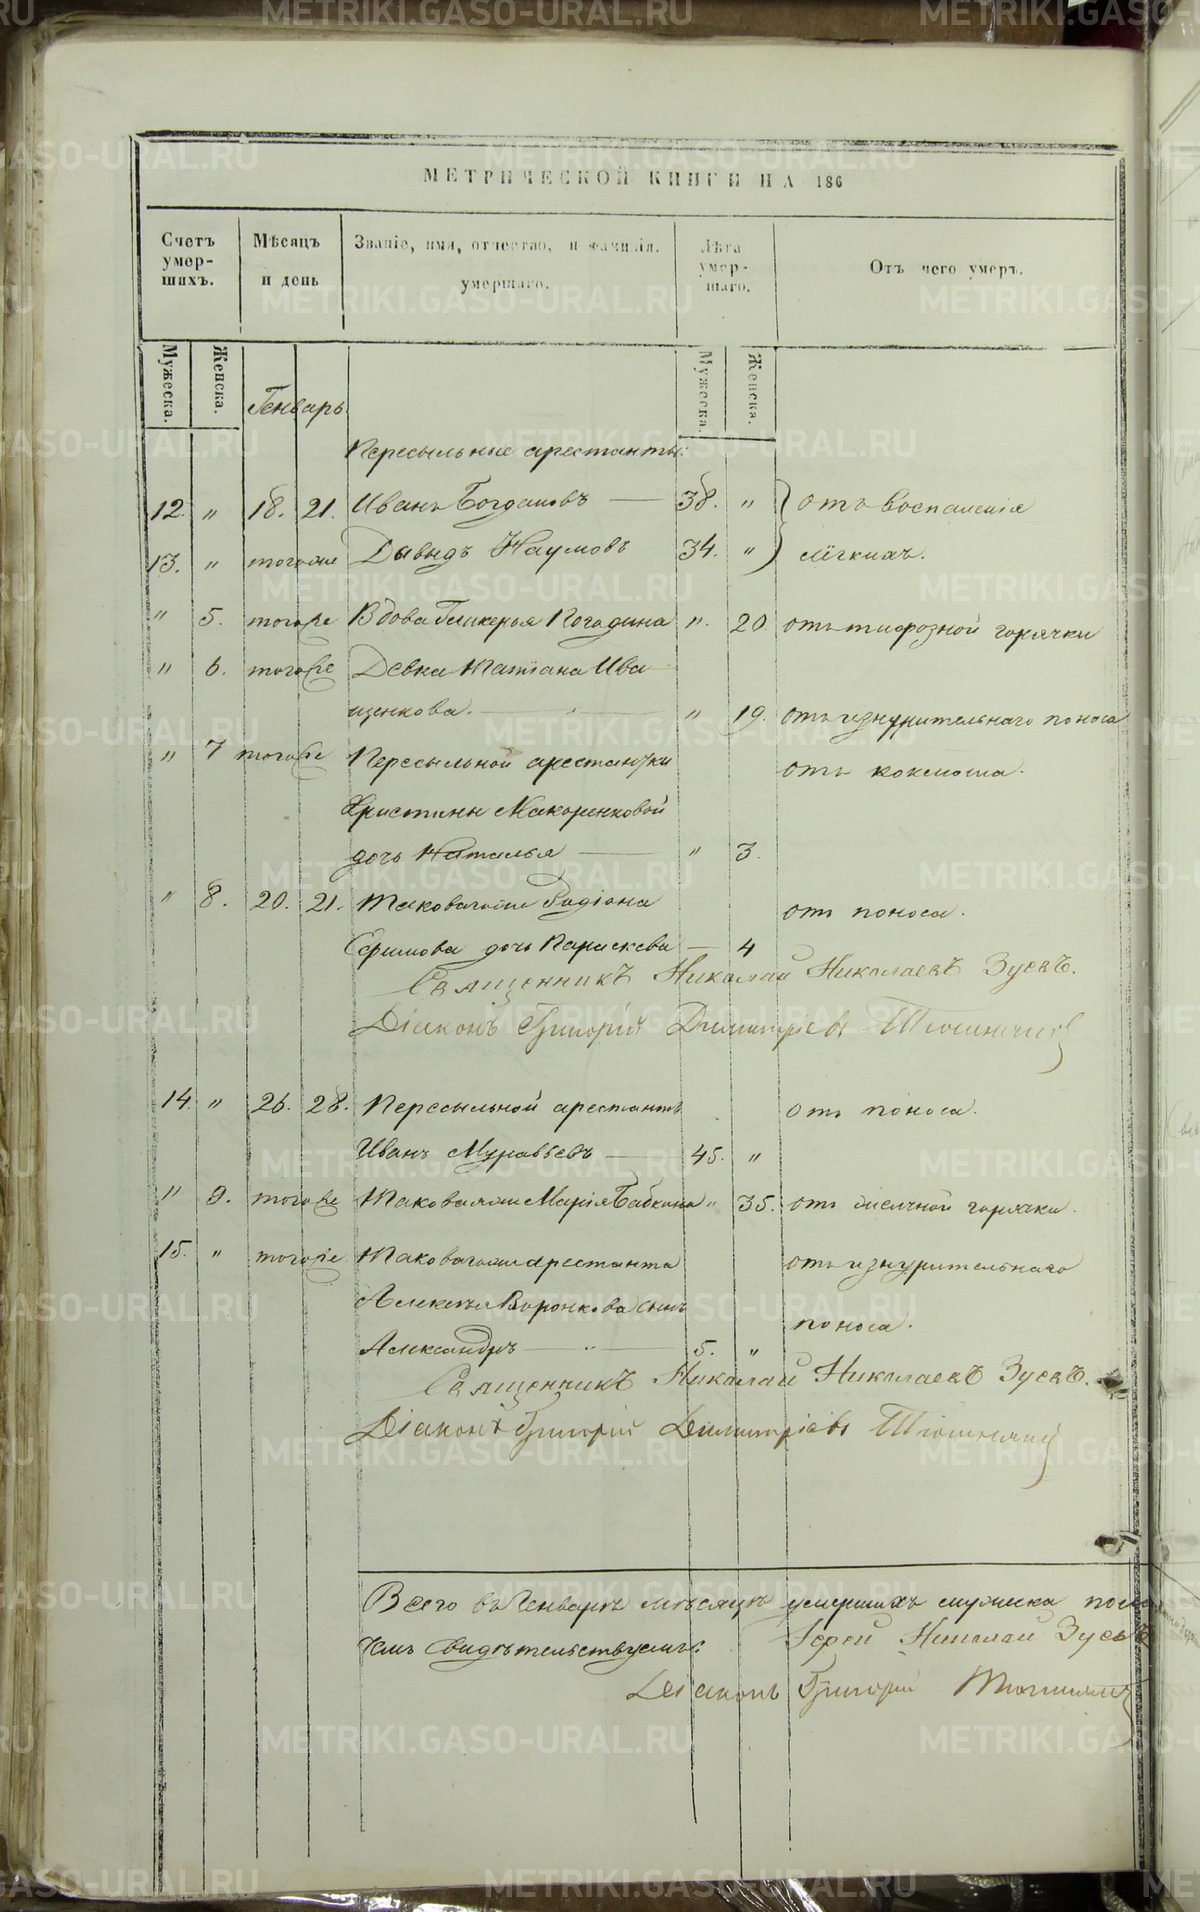 МЕТРИЧЕСКОЙ КНИГИ НА 186
Счетъ умер- шихъ.
Мѣсяцъ и день
Званіе, имя, отчество, и фамилія. умершаго.
Лѣта умер- шаго.
Отъ чего умеръ.
Мужеска. Женска. Мужеска. Женска.
Генварь.
Пересыльные арестанты:
12. " 18. 21. Иванъ Богдановъ — 38. " отъ воспаленія
13. " тогоже Давыдъ Наумовъ 34. " лёгкихъ.
" 5. тогоже Вдова Гликерья Погадина ". 20 отъ тифозной горячки
" 6. тогоже Девка Татіана Ива
щенкова. — " — " 19. отъ изнурительнаго поноса
" 7 тогоже Пересыльной арестантки отъ коклюша.
Христины Макоренковой
дочь Наталья — " 3.
" 8. 20. 21. Таковагоже Родіона отъ поноса.
Ефимова дочь Параскева — 4
Священникъ Николай Николаевъ Зуевъ.
Діаконъ Григорій Димитріевъ
14. " 26. 28. Пересыльной арестантъ отъ поноса.
Иванъ Муравьевъ — 45. "
" 9. тогоже Таковаяже Марія Бабкина " 35. отъ желчной горячки.
15. " тогоже Таковагоже арестанта отъ изнурительнаго
Алексѣя Воронкова сынъ поноса.
Александръ — " — 5. "
Священникъ Николай Николаевъ Зуевъ.
Діаконъ Григорій Димитріевъ
Всего въ Генварѣ мѣсяцѣ умершихъ мужеска пола
чемъ свидѣтельствуемъ: Іерей Николай Зуевъ
Діаконъ Григорій
METRIKI.GASO-URAL.RU